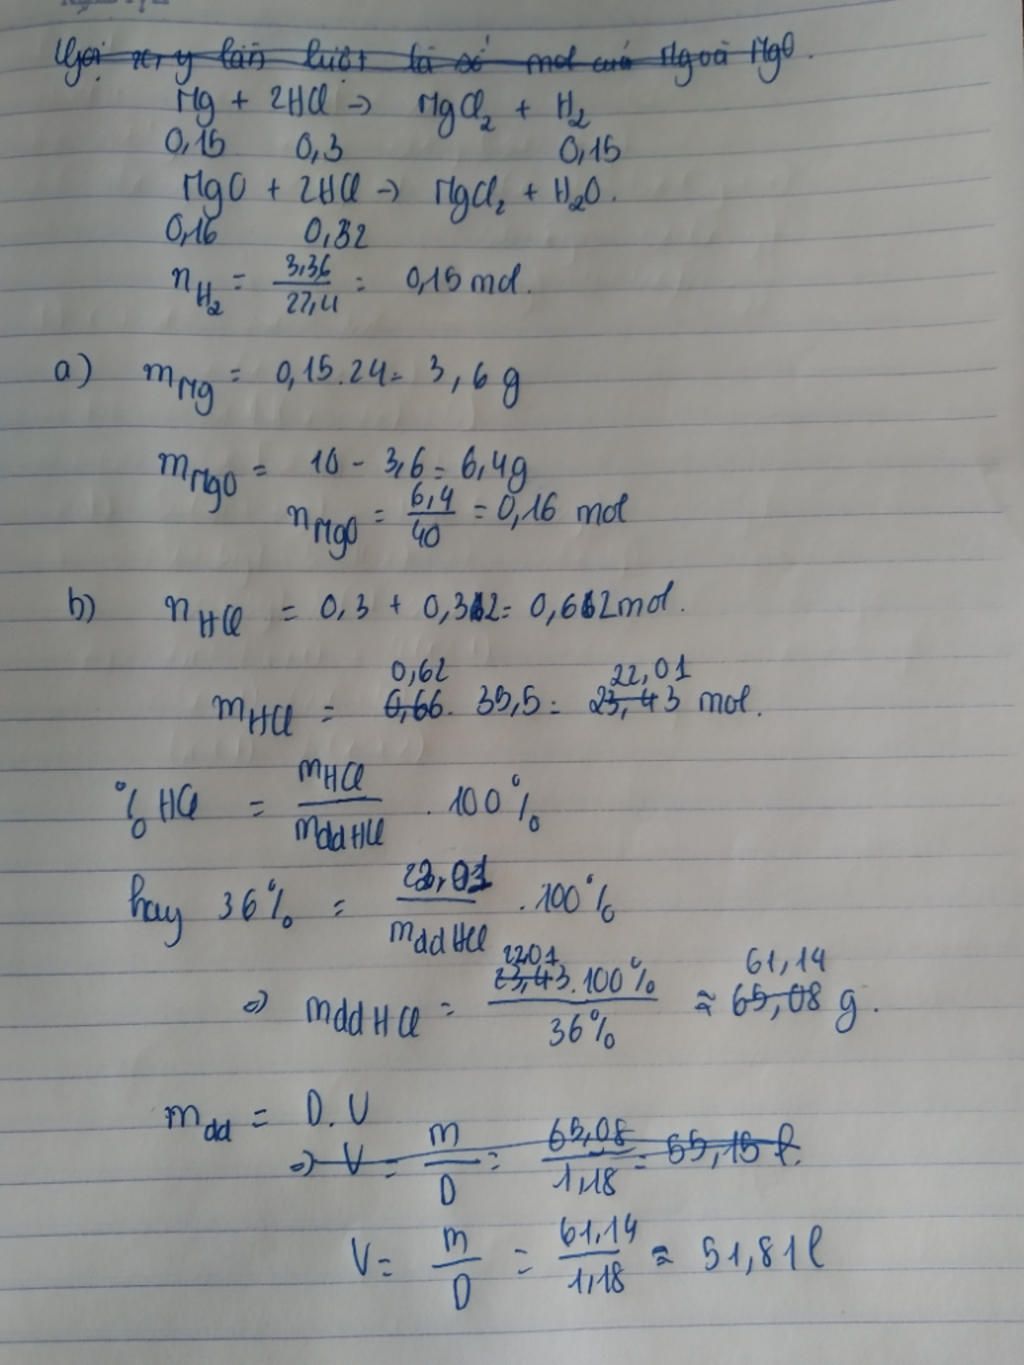 Gọi x, y lần lượt là số mol của Mg và MgO.
Mg + 2HCl -> MgCl2 + H2
0,15 0,3 0,15
MgO + 2HCl -> MgCl2 + H2O.
0,16 0,32
nH2 = 3,36/22,4 = 0,15 mol.
a) mMg = 0,15.24 = 3,6g
mMgO = 10 - 3,6 = 6,4g
nMgO = 6,4/40 = 0,16 mol
b) nHCl = 0,3 + 0,32 = 0,62 mol.
0,62 22,01
mHCl = 0,66. 35,5 = 23,43 mol.
% HCl = mHCl/mddHCl . 100%
hay 36% = 22,01/mddHCl . 100%
22,01 61,14
=> mddHCl = 23,43.100%/36% ≈ 65,08 g.
mdd = D.V
=> V = m/D = 65,08/1,18 = 55,15 l.
V = m/D = 61,14/1,18 ≈ 51,81 l